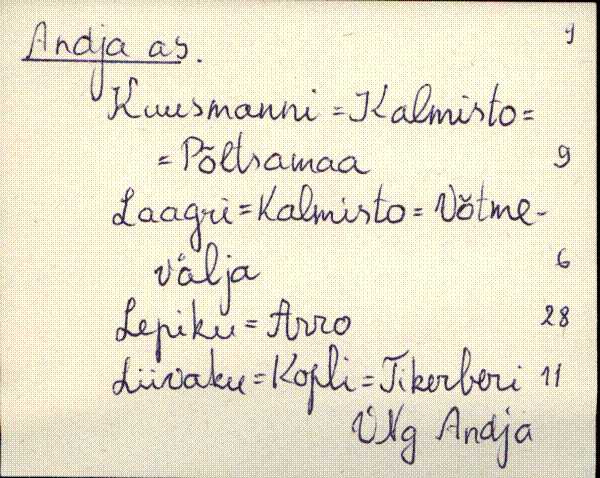 Andja as. 1
Kuusmanni = Kalmisto =
= Põltsamaa 9
Laagri = Kalmisto = Võtme-
välja 6
Lepiku = Arro 28
Liivaku = Kopli = Tikerberi 11
VNg Andja